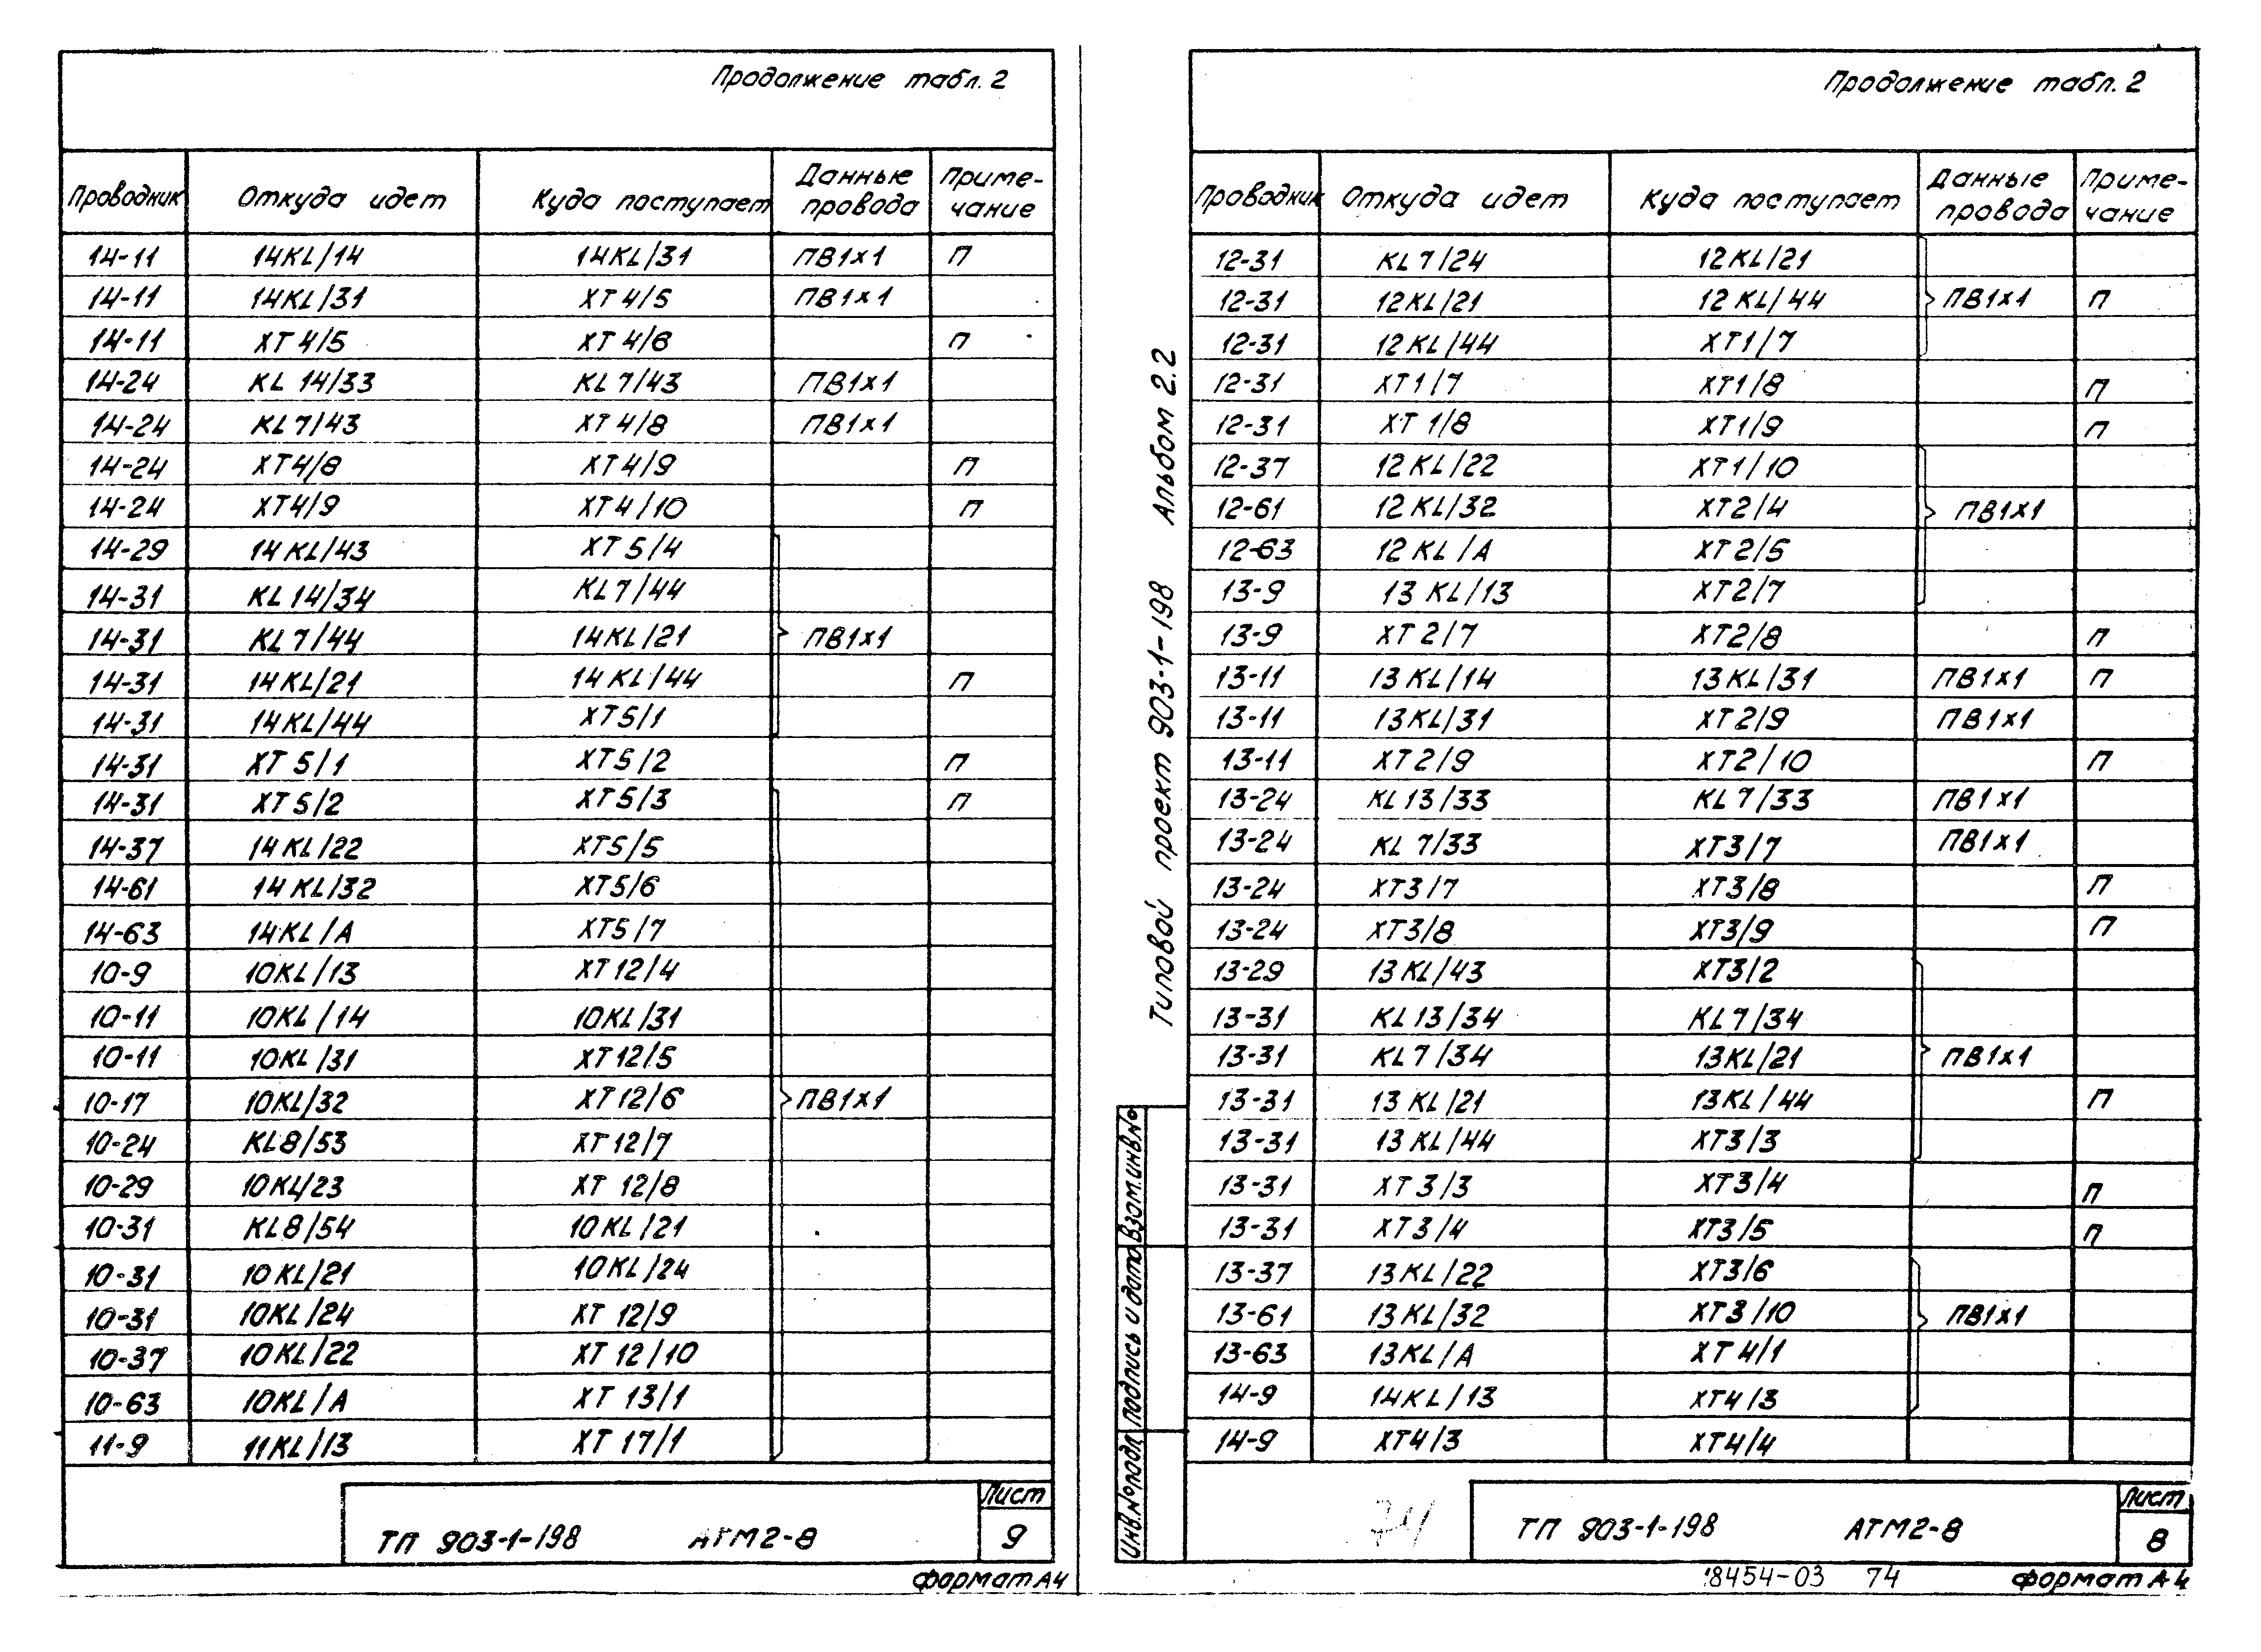 Продолжение табл. 2
Проводник Откуда идет Куда поступает Данные провода Примечание
14-11 14KL/14 14KL/31 ПВ1х1 П
14-11 14KL/31 XT4/5 ПВ1х1
14-11 XT4/5 XT4/6 П
14-24 KL14/33 KL7/43 ПВ1х1
14-24 KL7/43 XT4/8 ПВ1х1
14-24 XT4/8 XT4/9 П
14-24 XT4/9 XT4/10 П
14-29 14KL/43 XT5/4
14-31 KL14/34 KL7/44
14-31 KL7/44 14KL/21 ПВ1х1
14-31 14KL/21 14KL/44 П
14-31 14KL/44 XT5/1
14-31 XT5/1 XT5/2 П
14-31 XT5/2 XT5/3 П
14-37 14KL/22 XT5/5
14-61 14KL/32 XT5/6
14-63 14KL/A XT5/7
10-9 10KL/13 XT12/4
10-11 10KL/14 10KL/31
10-11 10KL/31 XT12/5
10-17 10KL/32 XT12/6 ПВ1х1
10-24 KL8/53 XT12/7
10-29 10KL/23 XT12/8
10-31 KL8/54 10KL/21
10-31 10KL/21 10KL/24
10-31 10KL/24 XT12/9
10-37 10KL/22 XT12/10
10-63 10KL/A XT13/1
11-9 11KL/13 XT17/1
ТП 903-1-198 АТМ2-8
Лист
9
Формат А4
Типовой проект 903-1-198 Альбом 2.2
Продолжение табл. 2
Проводник Откуда идет Куда поступает Данные провода Примечание
12-31 KL7/24 12KL/21
12-31 12KL/21 12KL/44 ПВ1х1 П
12-31 12KL/44 XT1/7
12-31 XT1/7 XT1/8 П
12-31 XT1/8 XT1/9 П
12-37 12KL/22 XT1/10
12-61 12KL/32 XT2/4 ПВ1х1
12-63 12KL/A XT2/5
13-9 13KL/13 XT2/7
13-9 XT2/7 XT2/8 П
13-11 13KL/14 13KL/31 ПВ1х1 П
13-11 13KL/31 XT2/9 ПВ1х1
13-11 XT2/9 XT2/10 П
13-24 KL13/33 KL7/33 ПВ1х1
13-24 KL7/33 XT3/7 ПВ1х1
13-24 XT3/7 XT3/8 П
13-24 XT3/8 XT3/9 П
13-29 13KL/43 XT3/2
13-31 KL13/34 KL7/34
13-31 KL7/34 13KL/21 ПВ1х1
13-31 13KL/21 13KL/44 П
13-31 13KL/44 XT3/3
13-31 XT3/3 XT3/4 П
13-31 XT3/4 XT3/5 П
13-37 13KL/22 XT3/6
13-61 13KL/32 XT3/10 ПВ1х1
13-63 13KL/A XT4/1
14-9 14KL/13 XT4/3
14-9 XT4/3 XT4/4
Инв.№подл. Подпись и дата Взам.инв.№
74
ТП 903-1-198 АТМ2-8
Лист
8
18454-03 74
Формат А4